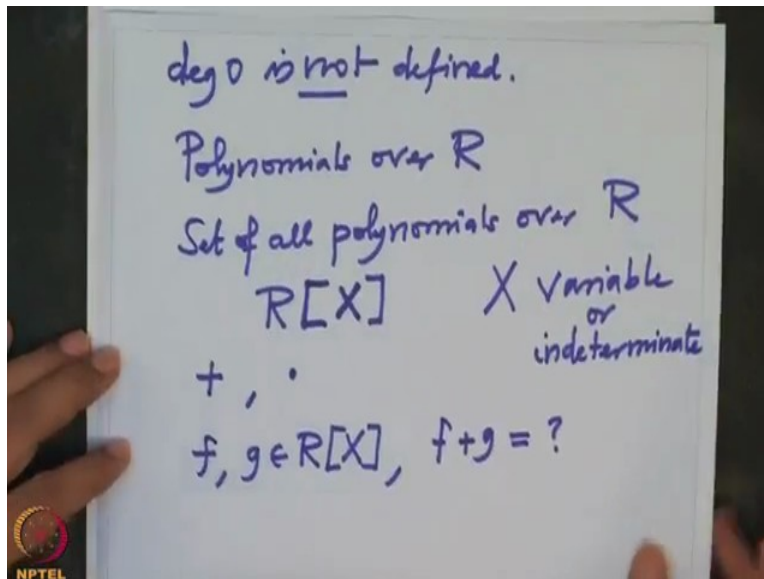 deg 0 is not defined.
Polynomials over R
Set of all polynomials over R
R[X] X variable
or
indeterminate
+, ·
f, g ∈ R[X], f+g = ?
NPTEL